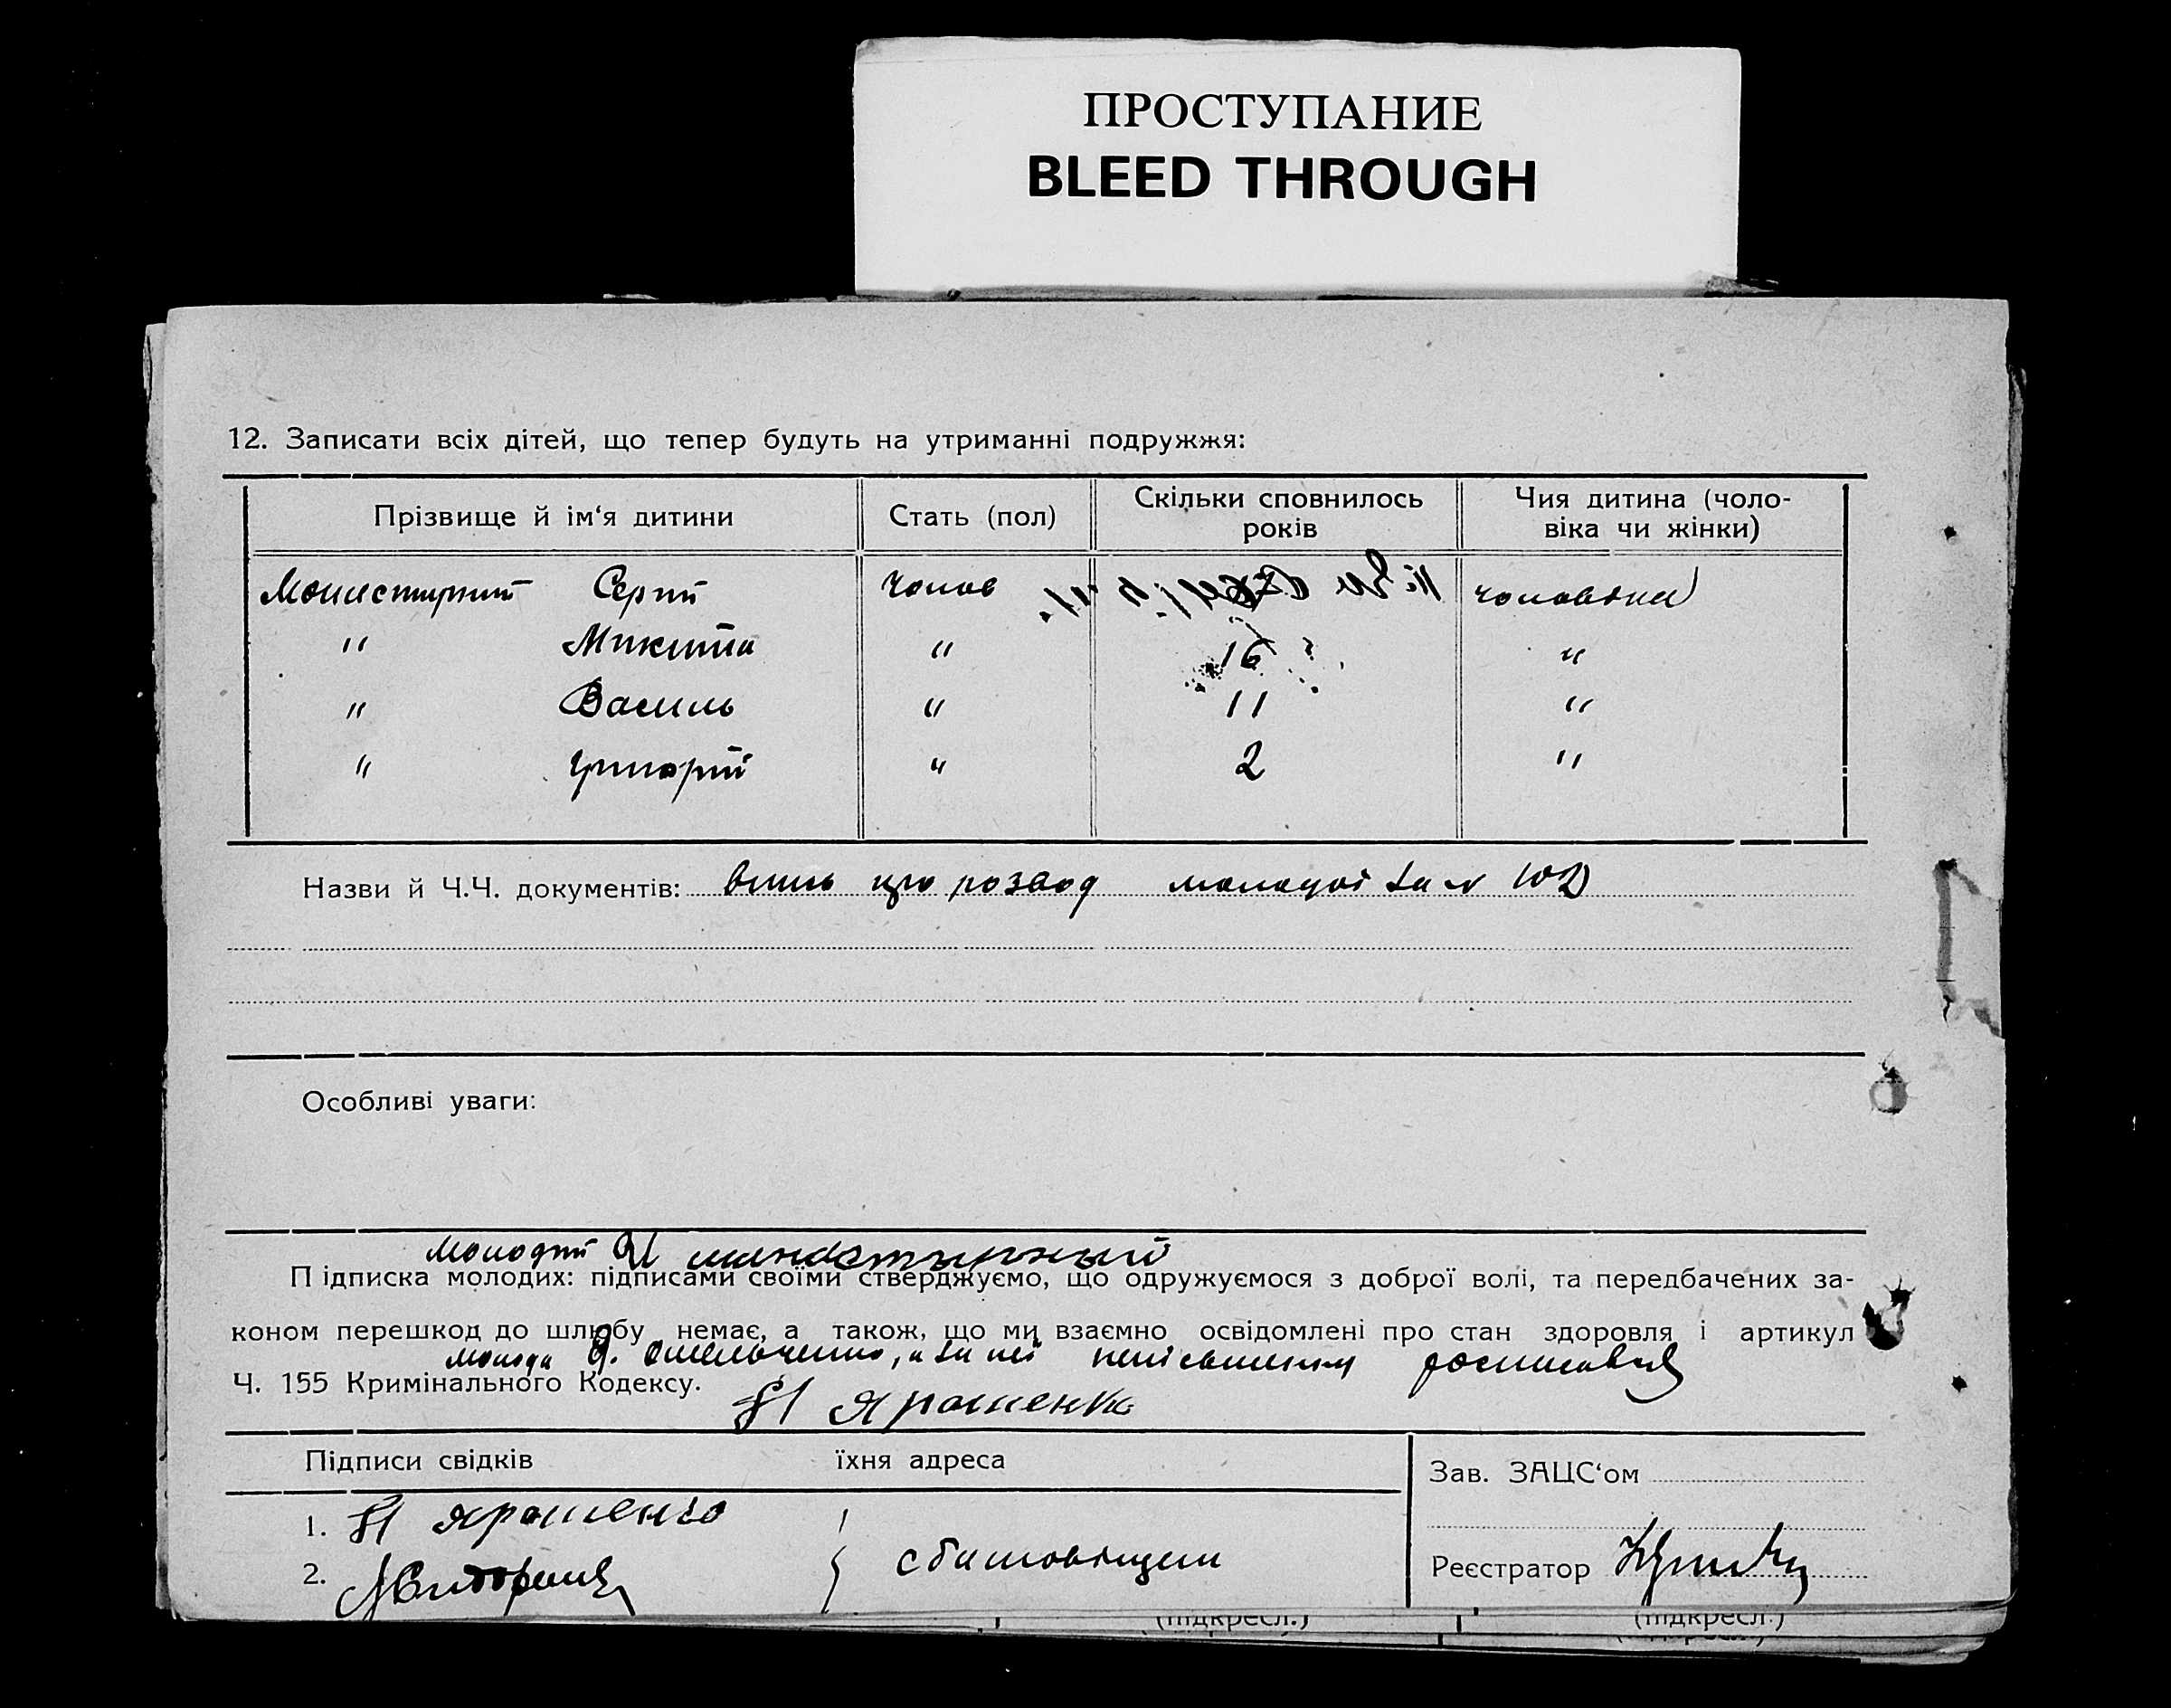 ПРОСТУПАНИЕ
BLEED THROUGH
12. Записати всіх дітей, що тепер будуть на утриманні подружжя:
Прізвище й ім‘я дитини
Стать (пол)
Скільки сповнилось
років
Чия дитина (чоло-
віка чи жінки)
Сергій чолов чоловіка
" Микита " 16 "
" Василь " 11 "
" Григорій " 2 "
Назви й Ч.Ч. документів: про розвод молодої за №
Особливі уваги:
Молодий
Підписка молодих: підписами своїми стверджуємо, що одружуємося з доброї волі, та передбачених за-
коном перешкод до шлюбу немає, а також, що ми взаємно освідомлені про стан здоровля і артикул
молода
Ч. 155 Кримінального Кодексу.
Ярошенко
Підписи свідків
їхня адреса
Зав. ЗАЦС‘ом
1. Ярошенко
2.
Реєстратор
(підкресл.)
(підкресл.)